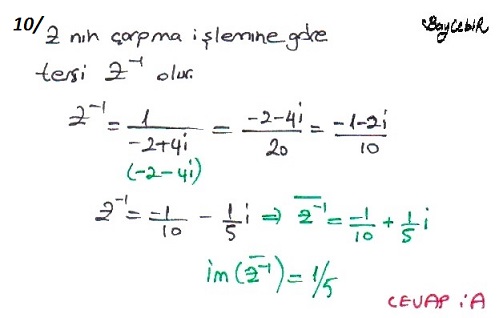 10/ z nin çarpma işlemine göre
Baycebir
tersi z⁻¹ olur.
z⁻¹ = 1/(-2+4i) = (-2-4i)/20 = (-1-2i)/10
(-2-4i)
z⁻¹ = -1/10 - 1/5 i ⇒ \overline{z⁻¹} = -1/10 + 1/5 i
im(\overline{z⁻¹}) = 1/5
CEVAP : A